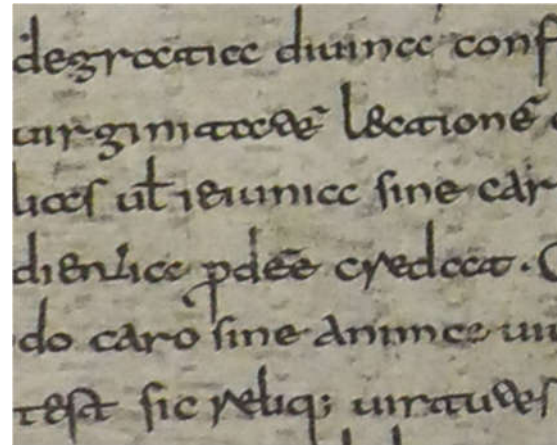 degratia diuina conf
uirginitatē lectionē
lias ut̄ ieiunia sine car
dientia ꝓdeēe credat. Q
do caro sine anima ui
test sic reliq; uirtutes